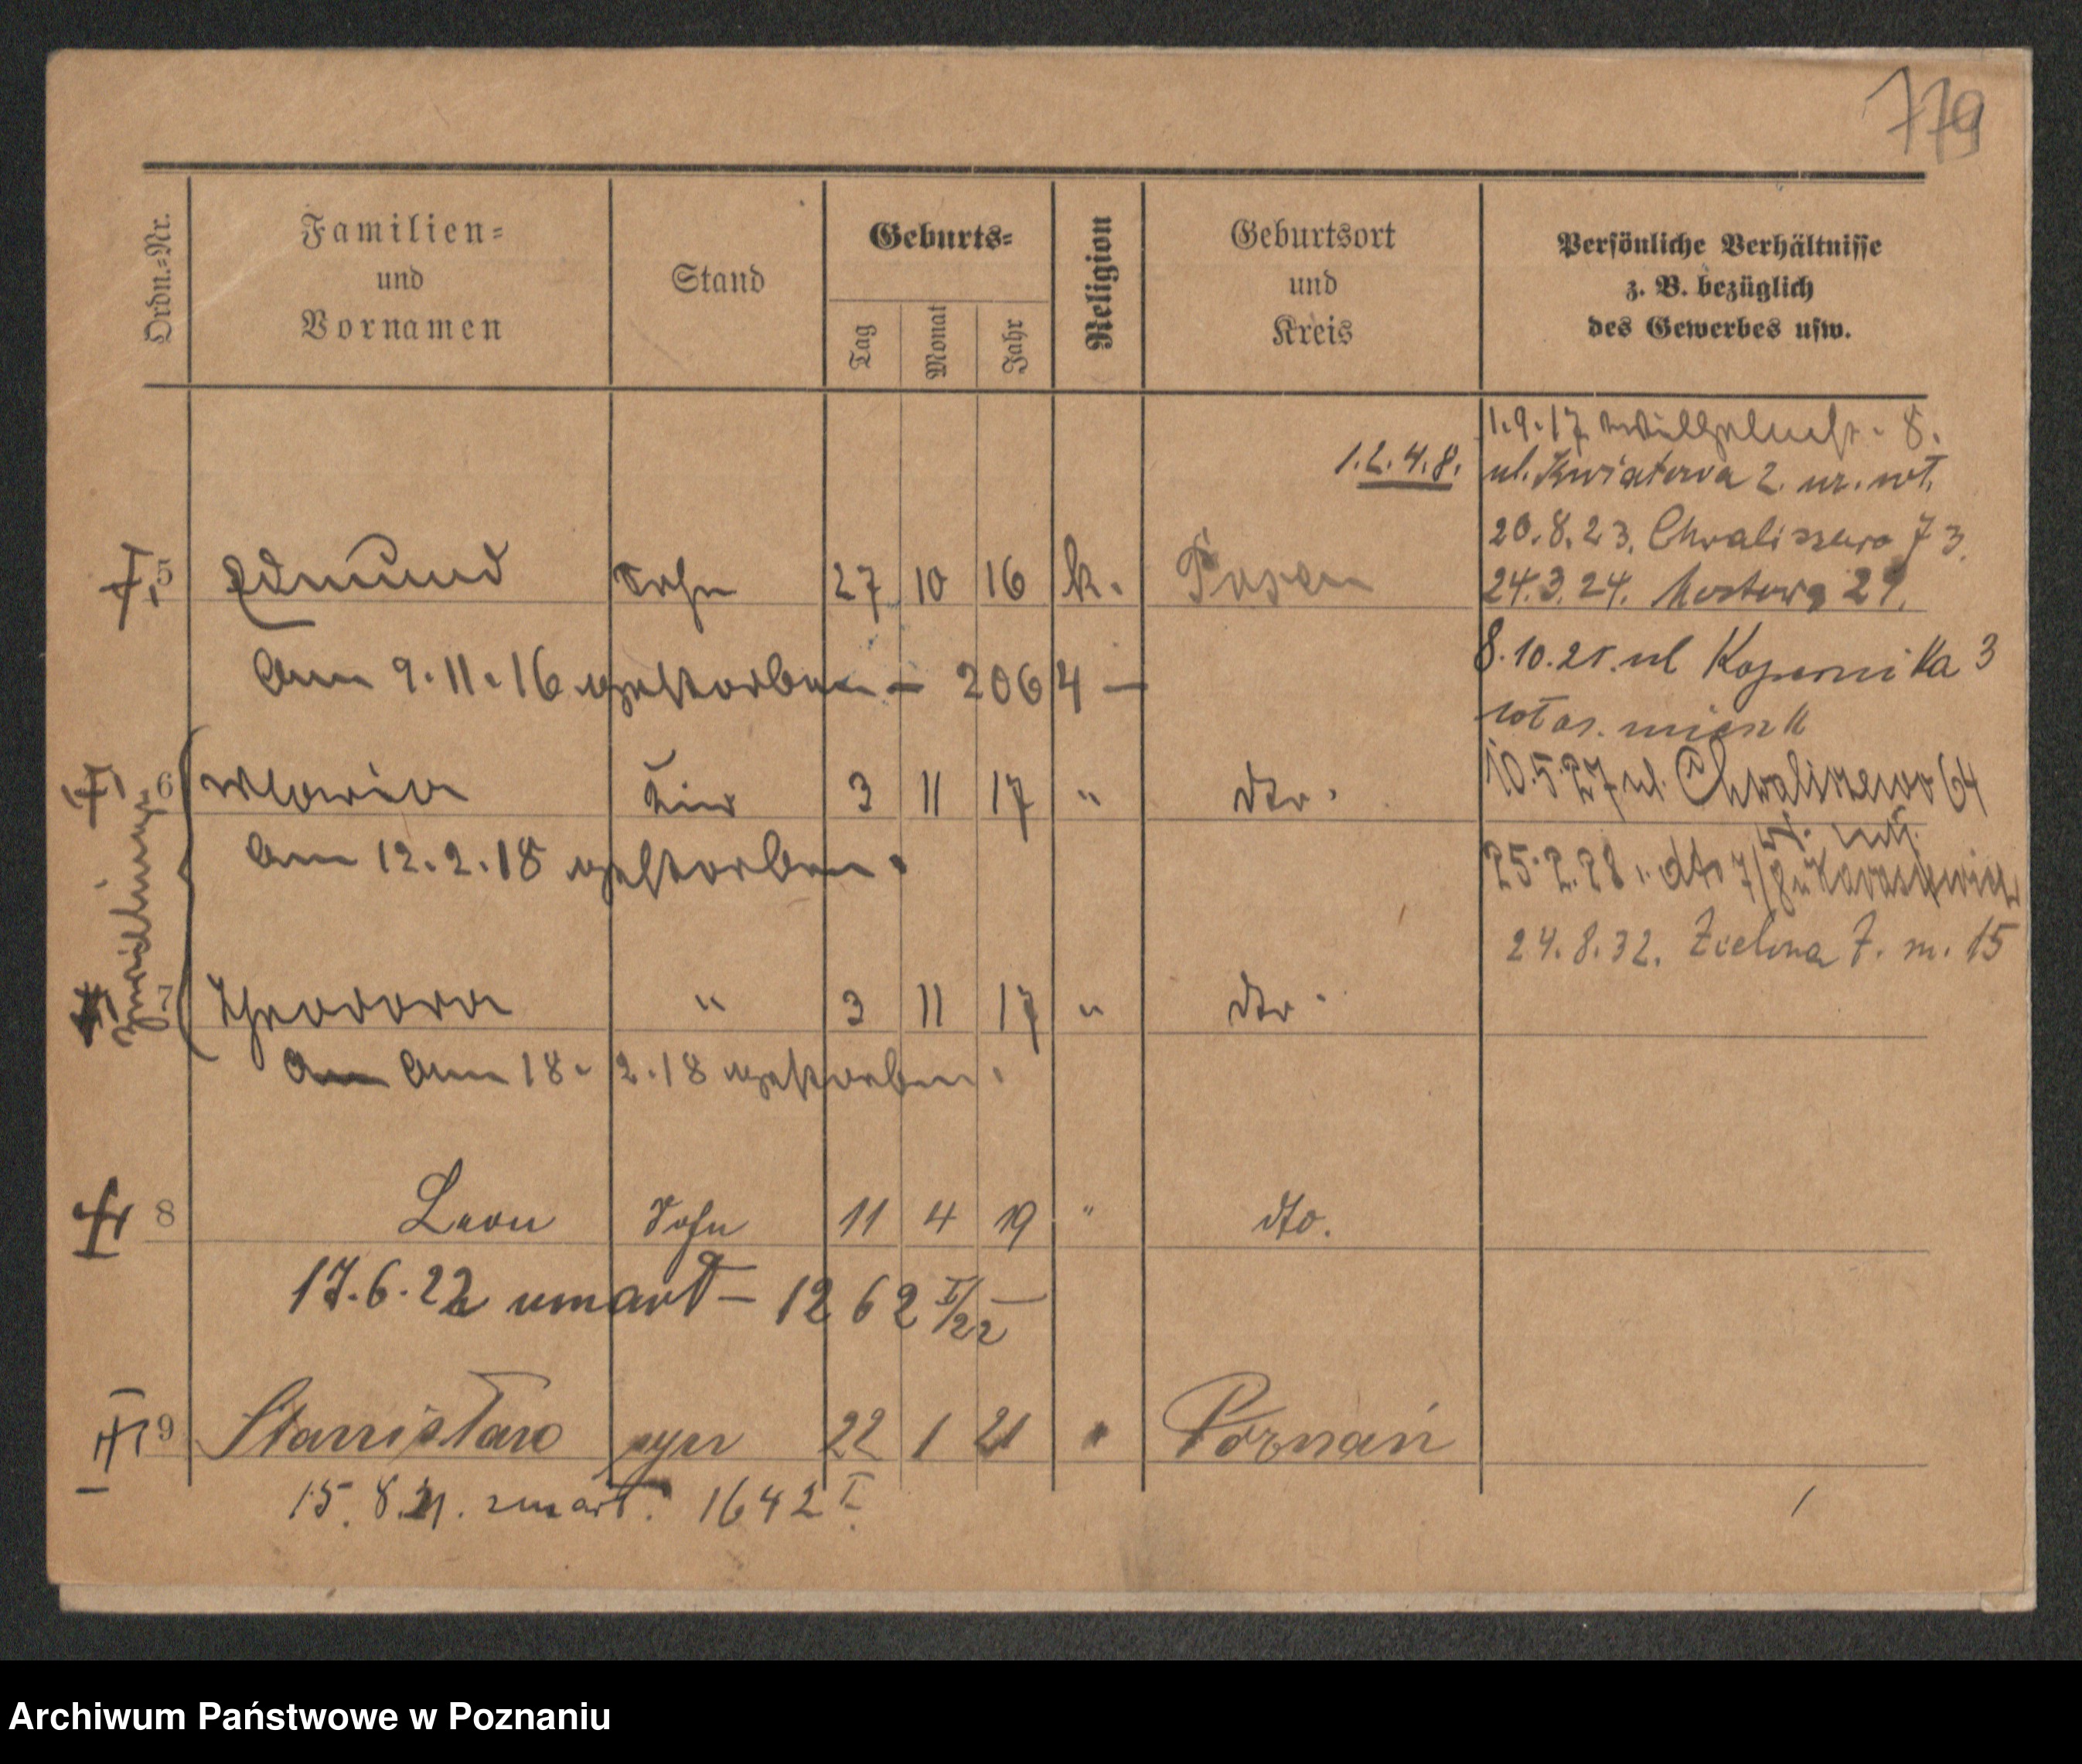 779
Ordn.=Nr.
Familien=
und
Vornamen
Stand
Geburts=
Tag
Monat
Jahr
Religion
Geburtsort
und
Kreis
Persönliche Verhältnisse
z. B. bezüglich
des Gewerbes usw.
1.9.17 Wilhelmstr. 8.
1.2.4.8.
ul. Kwiatowa 2.
20.8.23. Chwaliszewo 73.
24.3.24. Mostowa 29.
5 Edmund Sohn 27 10 16 k. Posen
am 9.11.16 gestorben – 2064 –
8.10.25. ul Kopernika 3
10.5.27 ul. Chwaliszewo 64
Zwillinge
6 Maria Kind 3 11 17 " dto.
am 12.2.18 gestorben.
25.2.28 " dto 7/8
24.8.32. Zielona 7. m. 15
7 Theodora " 3 11 17 " dto.
am am 18.2.18 gestorben.
8 Leon Sohn 11 4 19 " dto.
17.6.22 umarł – 1262 I/22 –
9 Stanisław syn 22 1 21 " Poznań
15.8.21. zmarł. 1642 I.
Archiwum Państwowe w Poznaniu